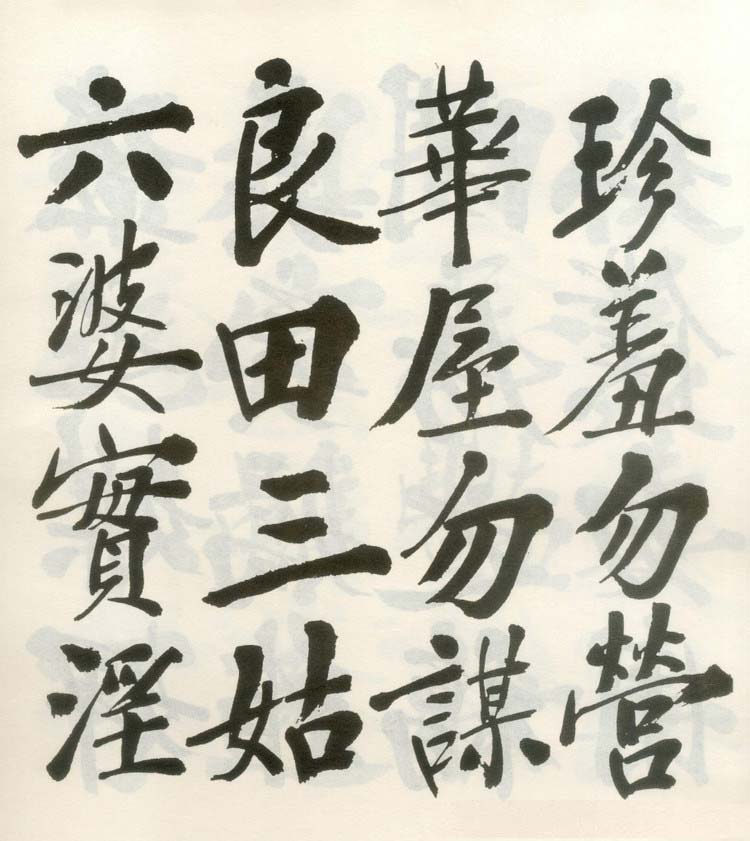 珍羞勿營
華屋勿謀
良田三姑
六婆實淫